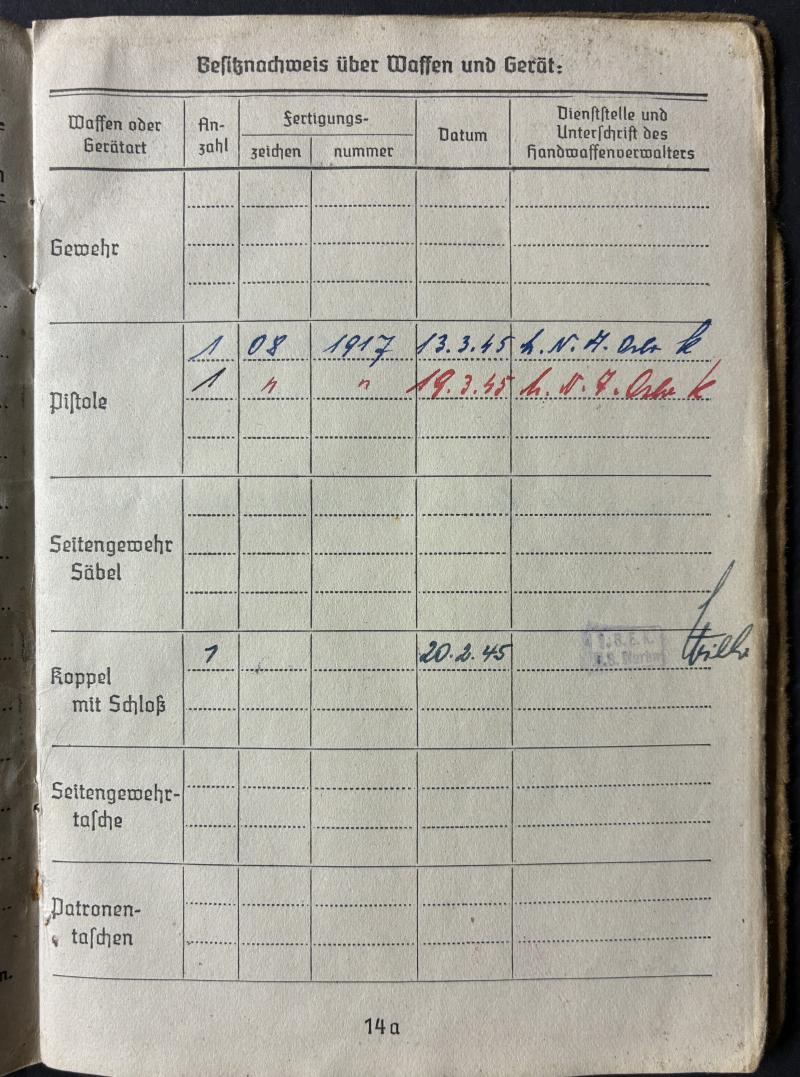 Besitznachweis über Waffen und Gerät:
Waffen oder Gerätart
An-zahl
Fertigungs-
zeichen
nummer
Datum
Dienststelle und Unterschrift des Handwaffenverwalters
Gewehr
Pistole
1 08 1917 13.3.45
1 " " 19.3.45
Seitengewehr
Säbel
Koppel
mit Schloß
1 20.2.45
Seitengewehr-
tasche
Patronen-
taschen
14a